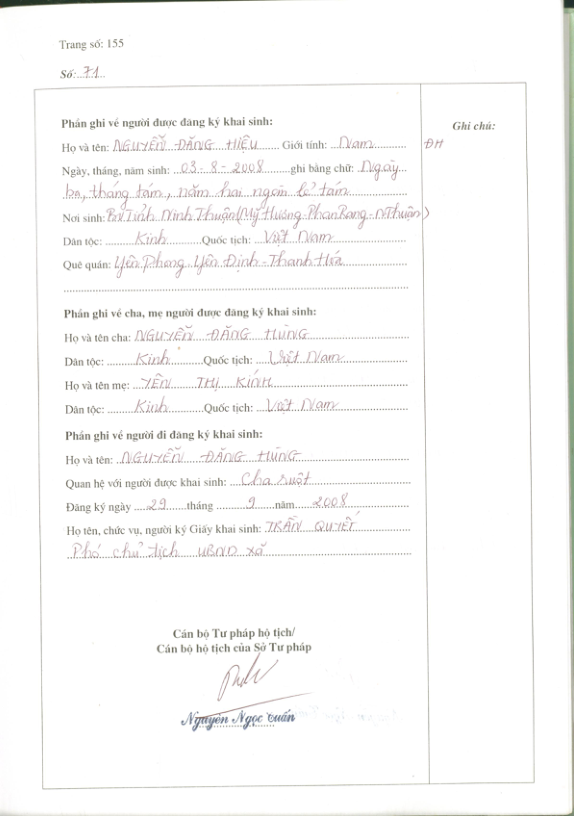 Trang số: 155
Số: 71
Phần ghi về người được đăng ký khai sinh:
Ghi chú:
Họ và tên: NGUYỄN ĐĂNG HIẾU Giới tính: Nam
ĐH
Ngày, tháng, năm sinh: 03 - 8 - 2008 ghi bằng chữ: Ngày
ba, tháng tám, năm hai ngàn lẻ tám
Nơi sinh: BV Tỉnh Ninh Thuận (Mỹ Hương - Phan Rang - NThuận)
Dân tộc: Kinh Quốc tịch: Việt Nam
Quê quán: Yên Phong Yên Định - Thanh Hóa
Phần ghi về cha, mẹ người được đăng ký khai sinh:
Họ và tên cha: NGUYỄN ĐĂNG HÙNG
Dân tộc: Kinh Quốc tịch: Việt Nam
Họ và tên mẹ: YÊN THỊ KÍNH
Dân tộc: Kinh Quốc tịch: Việt Nam
Phần ghi về người đi đăng ký khai sinh:
Họ và tên: NGUYỄN ĐĂNG HÙNG
Quan hệ với người được khai sinh: Cha ruột
Đăng ký ngày 29 tháng 9 năm 2008
Họ tên, chức vụ, người ký Giấy khai sinh: TRẦN QUYẾT
Phó chủ tịch UBND xã
Cán bộ Tư pháp hộ tịch/
Cán bộ hộ tịch của Sở Tư pháp
Nguyễn Ngọc Tuấn